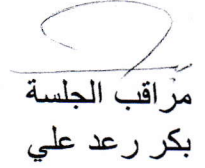 مراقب الجلسة
بكر رعد علي